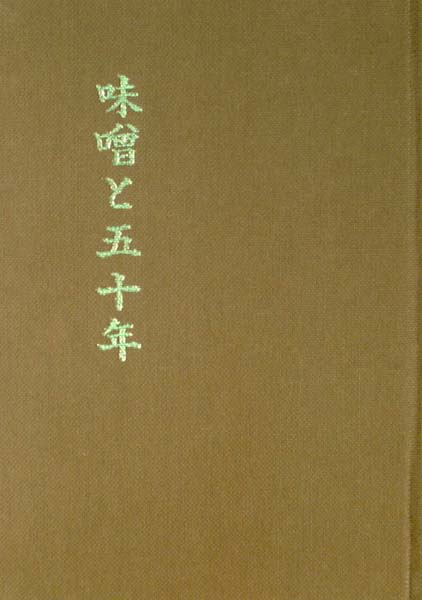 味噌と五十年